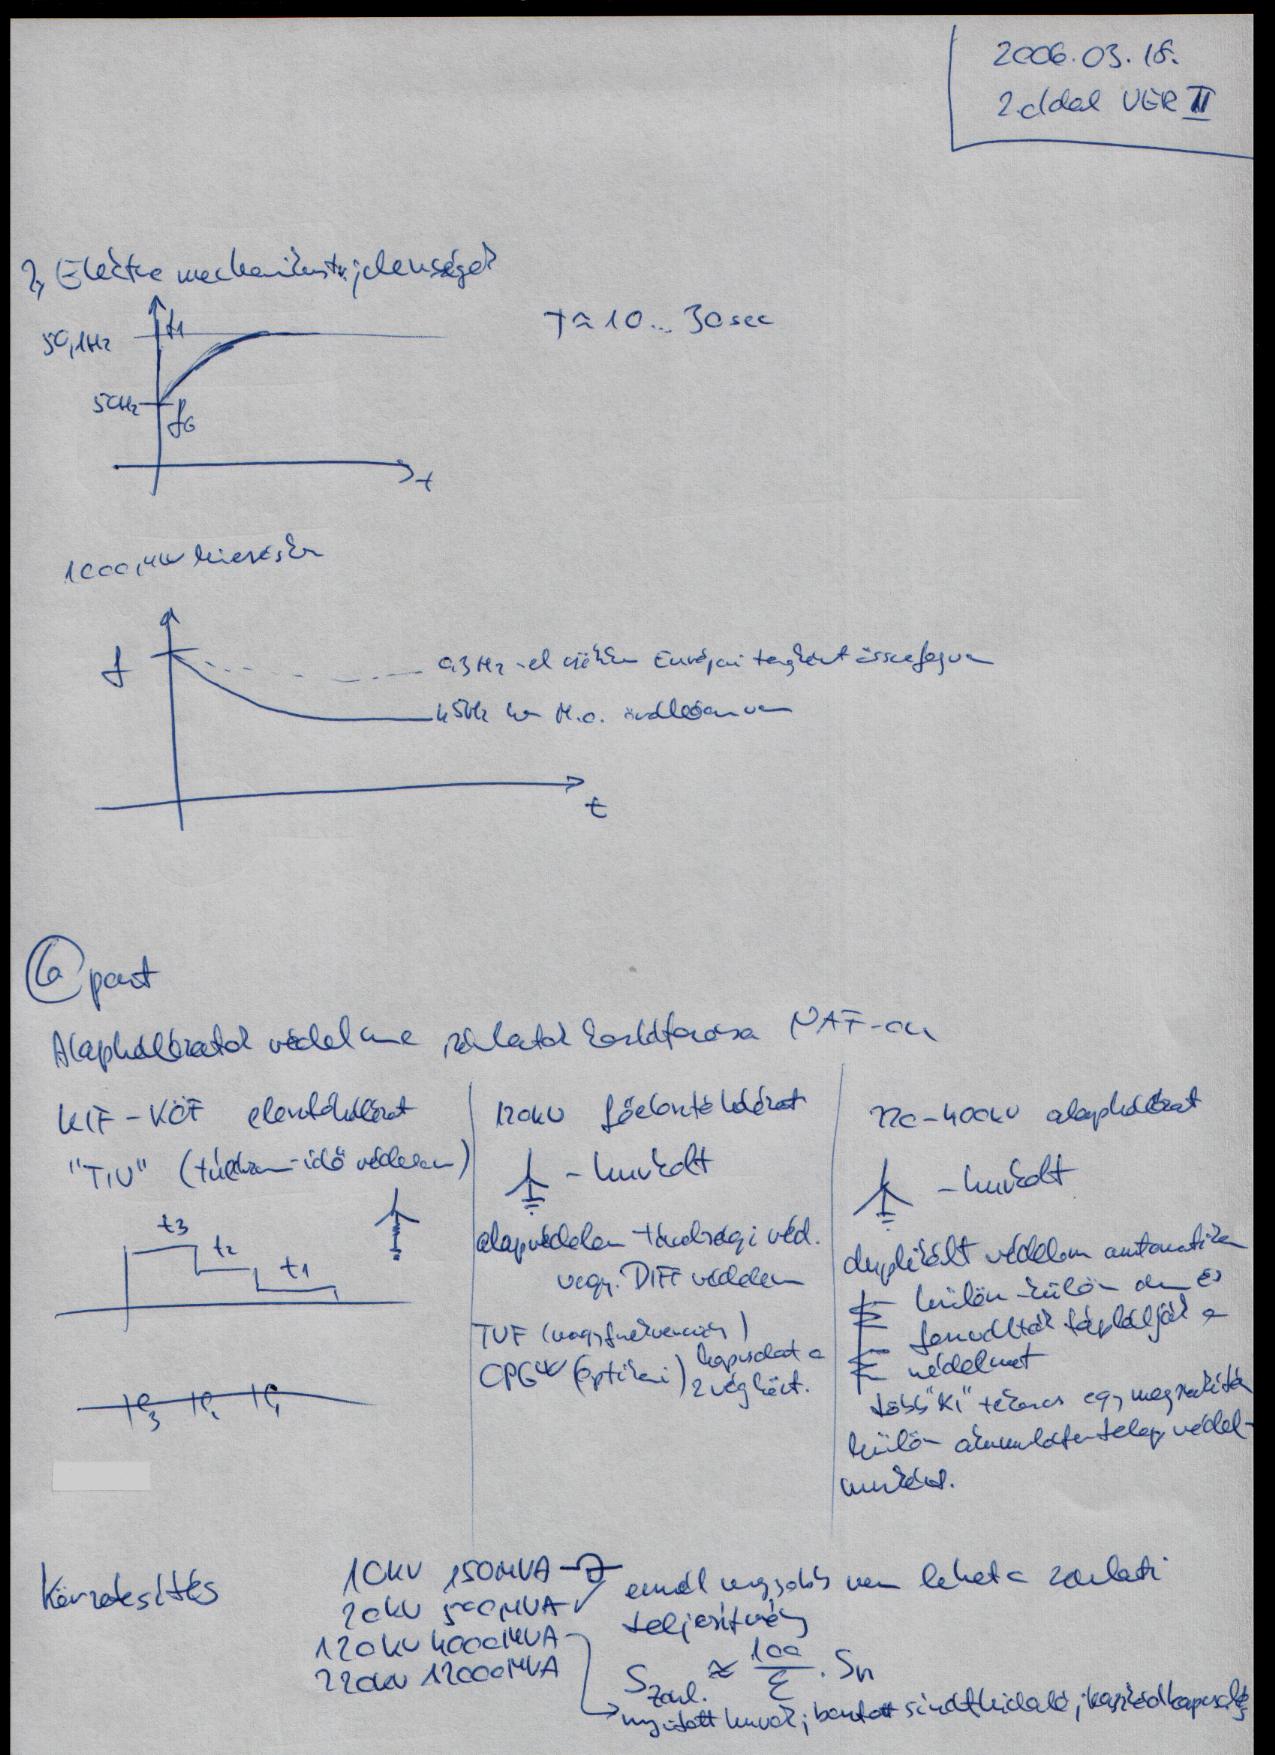 2006.03.18.
2.oldal VER II
2, Elektro mechanikus jelenségek
50,1Hz
f1
T≈10...30sec
50Hz
f0
t
1000MW kieséskor
f
0,3Hz-el Európai összefogva
ha M.o. van
t
6 pont
Alaphálózatok védelme zárlatok korlátozása NAF-on
KIF-KÖF elosztóhálózat
"TIV" (túláram-idő védelem)
t3
t2
t1
120kV főelosztó hálózat
- hurkolt
alapvédelem távolsági véd.
vagy. DIFF védelem
TVF (nagyfrekvenciás)
OPGW (optikai)
kapcsolat a
2 végközt.
220-400kV alaphálózat
- hurkolt
duplikált védelem automatika
külön-külön
táplálják a
védelmet
több "KI" tekercs egy megszakítón
külön akkumulátortelep védel-
mekhez.
Körzetesítés
10kV 150MVA
20kV 500MVA
120kV 4000MVA
220kV 12000MVA
ennél nagyobb nem lehet a zárlati
teljesítmény
Szárl. ≈ 100/ε · Sn
nyitott hurok; bontott sínáthidaló;